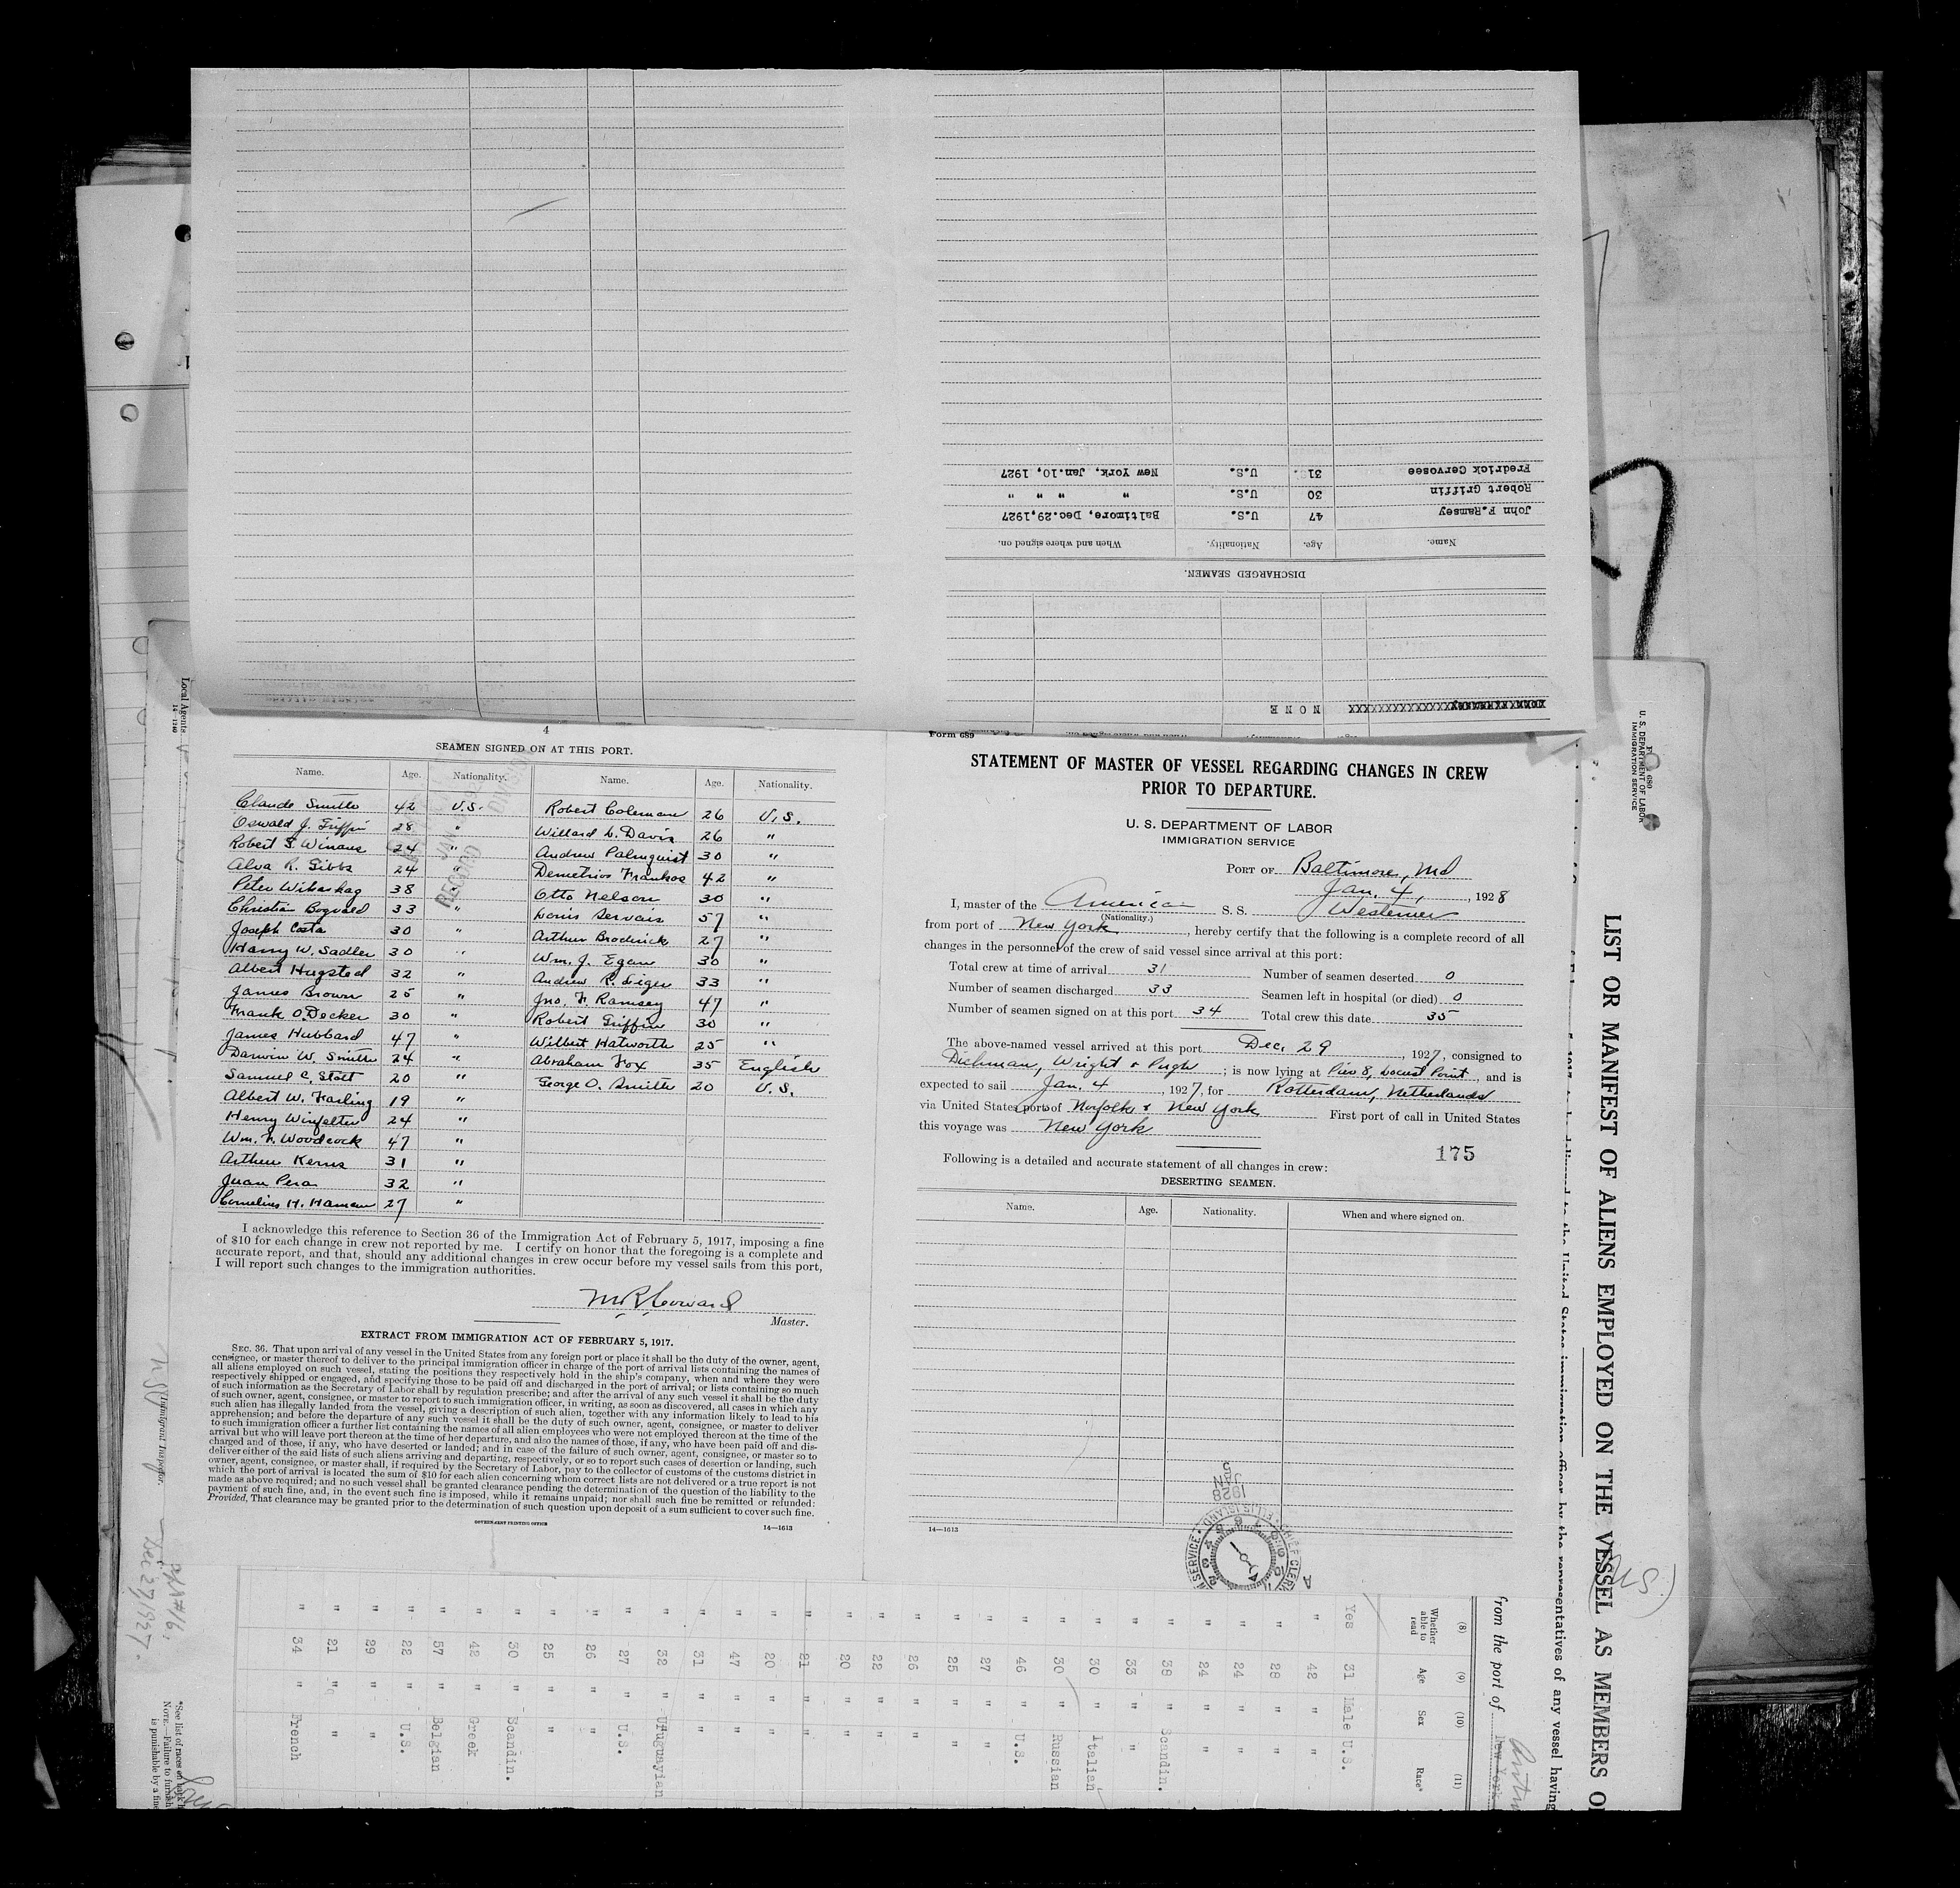 Fredrick Cervosee 31. U.S. New York, Jan.10, 1927
Robert Griffin 30 U.S. " " " "
John F.Ramsey 47 U.S. Baltimore, Dec.29,1927
Name. Age. Nationality. When and where signed on.
DISCHARGED SEAMEN.
NONE
4
SEAMEN SIGNED ON AT THIS PORT.
Name. Age. Nationality. Name. Age. Nationality.
Claude Smith 42 U.S. Robert Coleman 26 U.S.
Oswald J. Griffin 28 " Willard L. Davis 26 "
Robert S. Winans 24 " Andrew Palmquist 30 "
Alva R. Gibbs 24 " Demetrios Frankos 42 "
Peter 38 " Otto Nelson 30 "
Christian Bogvald 33 " Louis Servais 57 "
Joseph Costa 30 Arthur Broderick 27 "
Harry W. Sadler 30 " Wm. J. Egan 30 "
Albert Hugsted 32 " Andrew R. 33 "
James Brown 25 " Jno. F. Ramsey 47 "
Frank O. Decker 30 " Robert Griffin 30 "
James Hubbard 47 " Wilbert Hatworth 25 "
Darwin W. Smith 24 " Abraham Fox 35 English
Samuel C. Stott 20 " George O. Smith 20 U.S.
Albert W. Harling 19 "
Henry Winfelter 24 "
Wm. F. Woodcock 47 "
Arthur Kerns 31 "
Juan Pera 32 "
Cornelius H. Haman 27 "
I acknowledge this reference to Section 36 of the Immigration Act of February 5, 1917, imposing a fine
of $10 for each change in crew not reported by me. I certify on honor that the foregoing is a complete and
accurate report, and that, should any additional changes in crew occur before my vessel sails from this port,
I will report such changes to the immigration authorities.
Master.
EXTRACT FROM IMMIGRATION ACT OF FEBRUARY 5, 1917.
SEC. 36. That upon arrival of any vessel in the United States from any foreign port or place it shall be the duty of the owner, agent,
consignee, or master thereof to deliver to the principal immigration officer in charge of the port of arrival lists containing the names of
all aliens employed on such vessel, stating the positions they respectively hold in the ship's company, when and where they were
respectively shipped or engaged, and specifying those to be paid off and discharged in the port of arrival; or lists containing so much
of such information as the Secretary of Labor shall by regulation prescribe; and after the arrival of any such vessel it shall be the duty
of such owner, agent, consignee, or master to report to such immigration officer, in writing, as soon as discovered, all cases in which any
such alien has illegally landed from the vessel, giving a description of such alien, together with any information likely to lead to his
apprehension; and before the departure of any such vessel it shall be the duty of such owner, agent, consignee, or master to deliver
to such immigration officer a further list containing the names of all alien employees who were not employed thereon at the time of the
arrival but who will leave port thereon at the time of her departure, and also the names of those, if any, who have been paid off and dis-
charged and of those, if any, who have deserted or landed; and in case of the failure of such owner, agent, consignee, or master so to
deliver either of the said lists of such aliens arriving and departing, respectively, or so to report such cases of desertion or landing, such
owner, agent, consignee, or master shall, if required by the Secretary of Labor, pay to the collector of customs of the customs district in
which the port of arrival is located the sum of $10 for each alien concerning whom correct lists are not delivered or a true report is not
made as above required; and no such vessel shall be granted clearance pending the determination of the question of the liability to the
payment of such fine, and, in the event such fine is imposed, while it remains unpaid; nor shall such fine be remitted or refunded:
Provided, That clearance may be granted prior to the determination of such question upon deposit of a sum sufficient to cover such fine.
GOVERNMENT PRINTING OFFICE
14—1613
Form 689
STATEMENT OF MASTER OF VESSEL REGARDING CHANGES IN CREW
PRIOR TO DEPARTURE.
U. S. DEPARTMENT OF LABOR
IMMIGRATION SERVICE
PORT OF Baltimore, Md
Jan. 4, 1928
I, master of the American S. S. Westerner
(Nationality.)
from port of New York, hereby certify that the following is a complete record of all
changes in the personnel of the crew of said vessel since arrival at this port:
Total crew at time of arrival 31 Number of seamen deserted 0
Number of seamen discharged 33 Seamen left in hospital (or died) 0
Number of seamen signed on at this port 34 Total crew this date 35
The above-named vessel arrived at this port Dec. 29, 1927, consigned to
Dichman, Wright & Pugh; is now lying at Pier 8, Locust Point, and is
expected to sail Jan. 4, 1927, for Rotterdam, Netherlands
via United States ports of Norfolk & New York First port of call in United States
this voyage was New York
175
Following is a detailed and accurate statement of all changes in crew:
DESERTING SEAMEN.
Name. Age. Nationality. When and where signed on.
14—1613
1928
JAN
5
ELLIS ISLAND
CHIEF CLERK
N SERVICE
RECORD DIVISION
Local Agents
14—1240
Immigrant Inspector.
Dec 27, 1927.
*See list of races on back
NOTE.—Failure to furnish
is punishable by a fine
U. S. DEPARTMENT OF LABOR
IMMIGRATION SERVICE
LIST OR MANIFEST OF ALIENS EMPLOYED ON THE VESSEL AS MEMBERS O
by the representatives of any vessel having
from the port of New York
(8) (9) (10) (11)
Whether able to read Age Sex Race*
Yes 31 Male U.S.
" 42 " "
" 28 " "
" 24 " "
" 24 " "
" 38 " Scandin.
" 33 " "
" 30 " Italian
" 30 " Russian
" 46 " U.S.
" 27 " "
" 25 " "
" 26 " "
" 22 " "
" 20 " "
" 21 " "
" 20 " "
" 47 " "
" 31 " "
" 32 " Uruguayian
" 27 " U.S.
" 26 " "
" 25 " "
" 30 " Scandin.
" 42 " Greek
" 57 " Belgian
" 22 " U.S.
" 29 " "
" 21 " "
" 34 " French